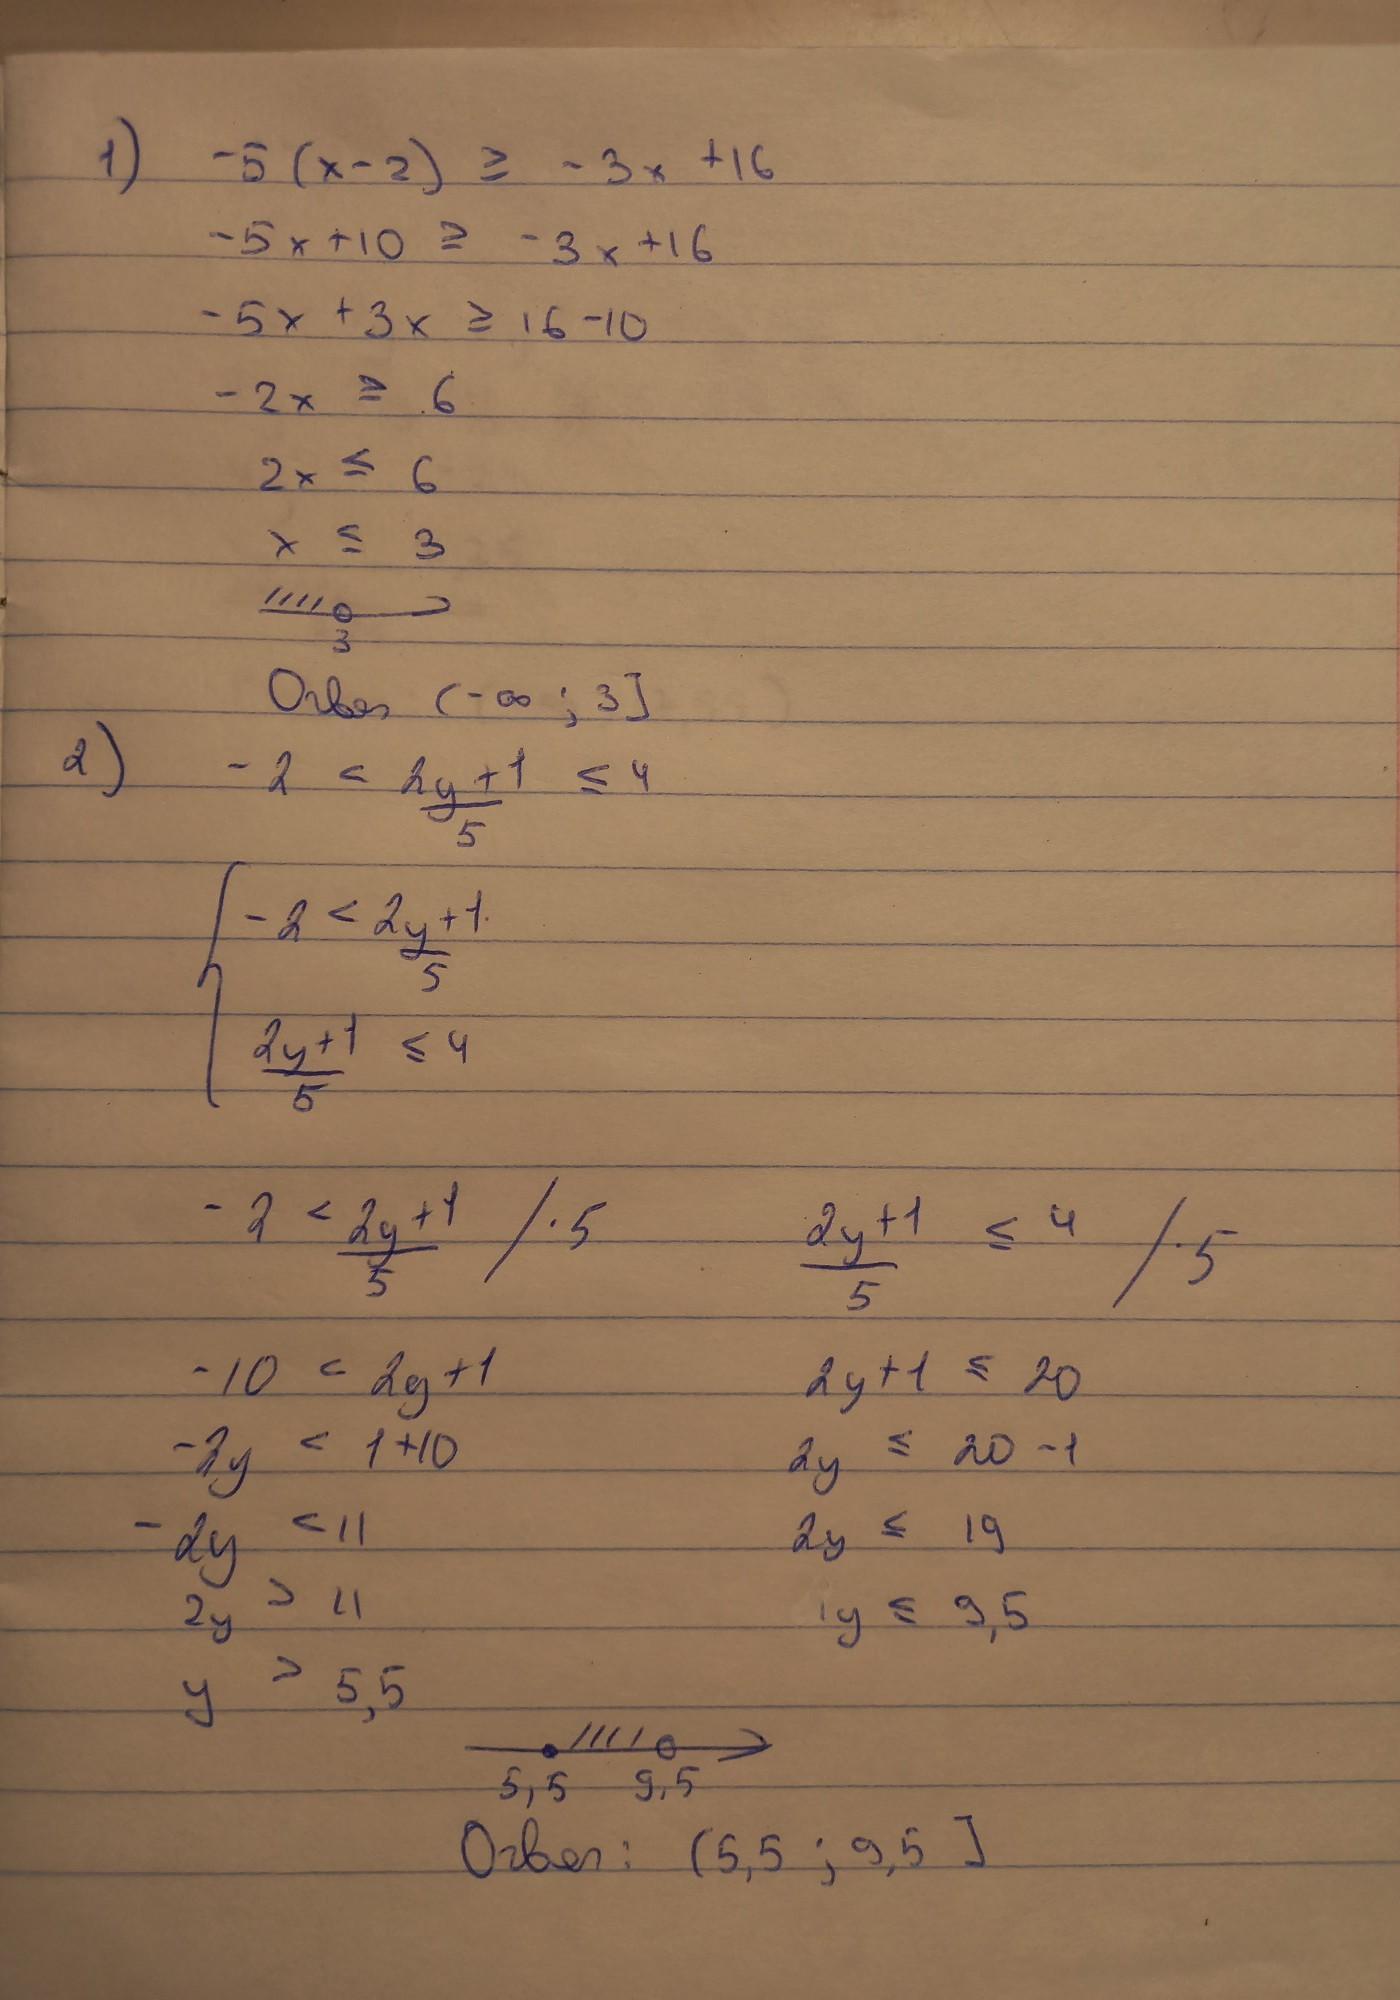 1) -5(x-2) ≥ -3x +16
-5x+10 ≥ -3x+16
-5x +3x ≥ 16-10
-2x ≥ 6
2x ≤ 6
x ≤ 3
3
Ответ (-∞ ; 3]
2) -2 < (2y+1)/5 ≤ 4
{ -2 < (2y+1)/5
(2y+1)/5 ≤ 4
-2 < (2y+1)/5 /·5
-10 < 2y+1
-2y < 1+10
-2y < 11
2y > 11
y > 5,5
(2y+1)/5 ≤ 4 /·5
2y+1 ≤ 20
2y ≤ 20-1
2y ≤ 19
y ≤ 9,5
5,5 9,5
Ответ: (5,5 ; 9,5 ]